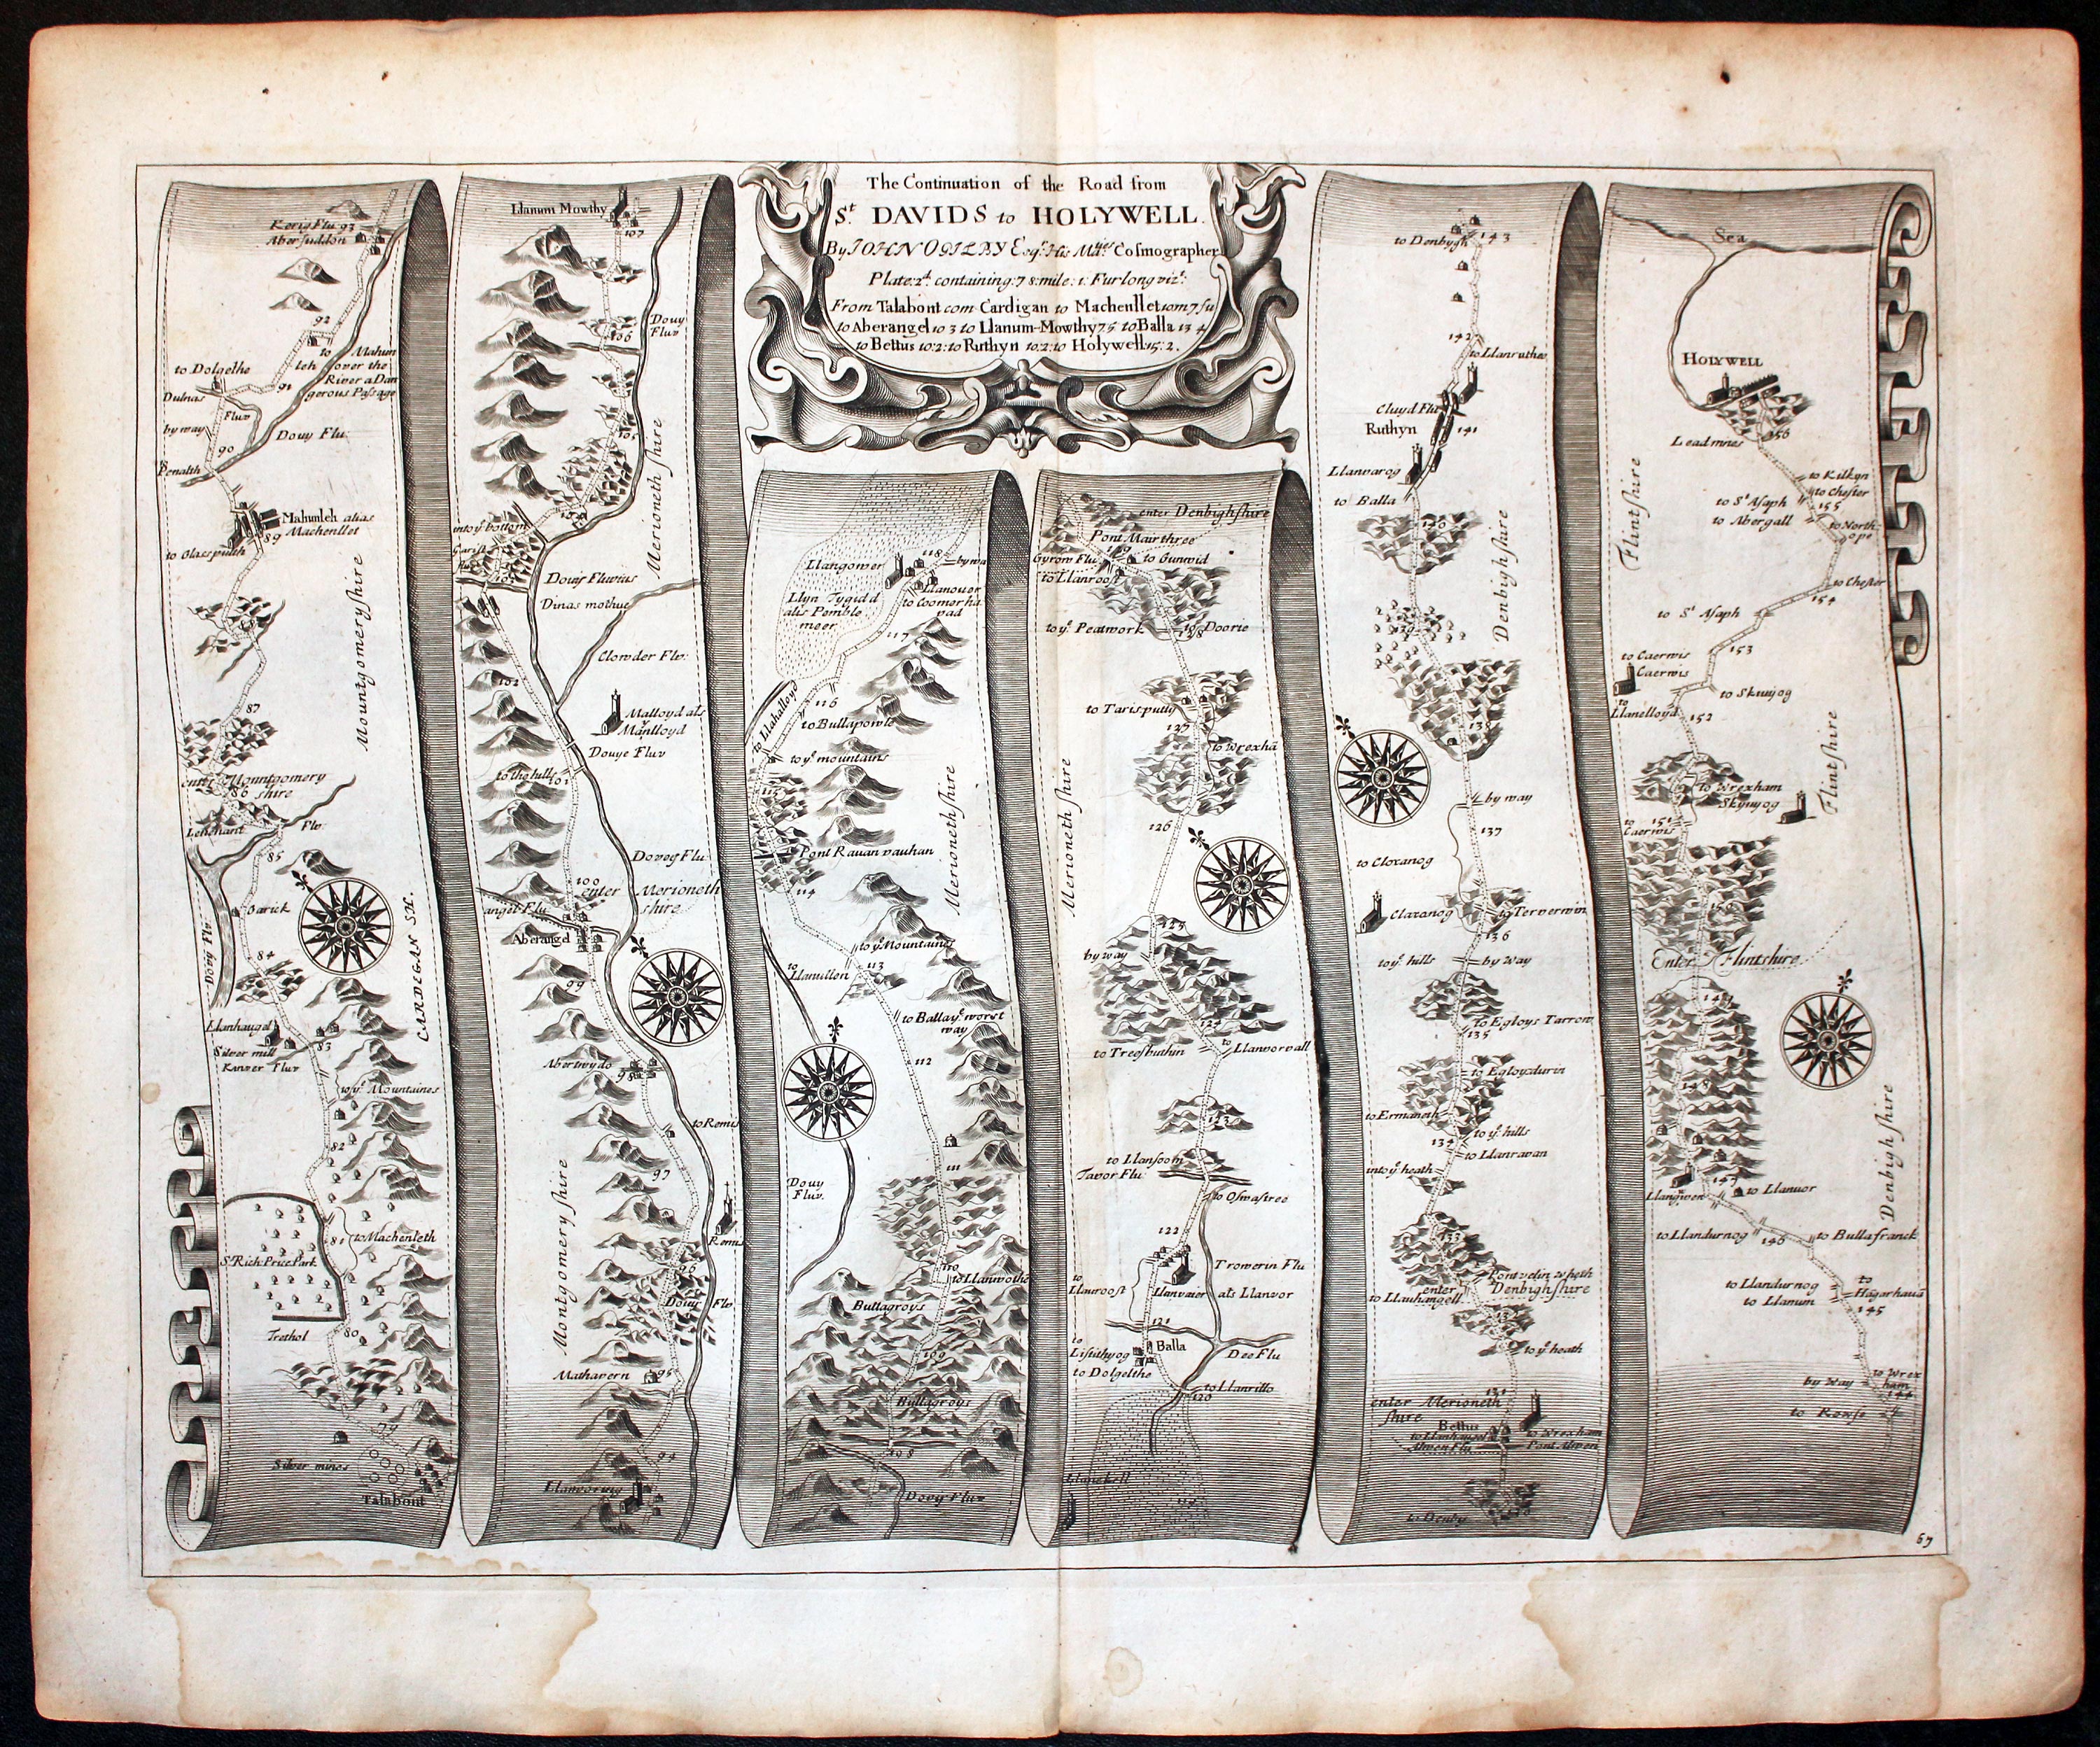 The Continuation of the Road from
St. DAVIDS to HOLYWELL.
By JOHN OGILBY Esqr. His Maties Cosmographer
Plate: 2d. containing: 78: mile: 1: Furlong vizt:
From Talabont com Cardigan to Machenllet 10m7fu
to Aberangel 10 3 to Llanum-Mowthy 7 5 to Balla 13 4
to Bettus 10:2: to Ruthyn 10:2: to Holywell: 15: 2.
Keris Flu 93
Abersuddon
92
to Mahun
leh over the
River a Dan
gerous Passage
to Dolgelhe
91
Dulnas
Fluv
by way
Douy Flu:
90
Penalth
Mahunleh alias
Machenllet
89
to Glaspulth
Mountgomery shire
87
enter Mountgomery
86 shire
Lenchant Flv:
85
Garick
Dovy Flv
84
CARDEGAN SH.
Llanhaugel
Silver mill
83
Kinver Fluv
to ye Mountaines
82
81
to Machenleth
Sr Rich: Price Park
Trethol
80
79
Silver mines
Talabont
Llanum Mowthy
107
Douy
Fluv
106
105
Merioneth shire
104
into ye bottom
Garist
103
Douy Fluvius
Dinas mothue
Clowder Flv:
102
Malloyd als
Manlloyd
Douye Fluv
to the hills
101
Dovey Flu
100
enter Merioneth
shire
angel Flu
Aberangel
99
Abertwydo
98
to Remis
97
Remis
Montgomery shire
96
Douy Flv
Mathavern
95
94
Llanvoring
118
by wa
Llangower
Llanouer
to Coomerha
pad
Llyn Tygidd
alis Pemble
meer
117
116
to Llahalloyd
to Bullapowle
to ye mountains
115
Pont Rauan vauhan
114
Merioneth shire
to ye Mountains
113
to
Llanullen
to Balla ye worst
way
112
111
Douy
Fluv.
110
to Llanwothe
Bullagroys
109
Bullagroys
108
Dovy Fluv
enter Denbighshire
Pont Mair three
129
Gyrow Flu
to Gunwid
to Llanroost
to ye Peatwork
128
to Doorie
to Tarisputty
127
to Wrexha
126
Merioneth shire
125
by way
124
to Treosbuthin
to
Llanvorvall
123
to Llansoom
Tavor Flu
to Oswastree
122
Trowerin Flu
to
Llanroost
Llanvaier als Llanvor
121
to
Listithyog
Balla
Dee Flu
to Dolgelthe
to Llanrillo
120
119
to Denbygh
143
142
to Llanruther
Cluyd Flu
Ruthyn
141
Llanvarog
to Balla
140
Denbigh shire
139
138
by way
137
to Cloxanog
Claxanog
to Terverwin
136
to ye hills
by Way
to Egloys Tarron
135
to Egloysdurin
to Ermaneth
134
to ye hills
to Llanravan
into ye heath
133
Pont velin wheth
enter Denbighshire
to Llanhangell
132
to ye heath
131
enter Merioneth
shire
Bettus
to Llanhangel
to Wrexham
Alwen Flu
Pont Alwen
130
to Denby
Sea
HOLYWELL
156
Lead mines
to Kilkyn
to Chester
to St. Asaph
155
to Abergall
to North:
ope
Flint shire
to Chester
154
to St Asaph
153
to Caerwis
Caerwis
to Skuiyog
to
Llanelloyd
152
to Wrexham
Skyuyog
Flint shire
to
Caerwis
151
150
Enter Flintshire
149
148
Denbigh shire
147
Llangwen
to Llanuor
to Llandurnog
146
to Bullafranck
to Llandurnog
to
Hagarhaua
to Llanum
145
by Way
to Wrex
ham
144
to Rowse
67